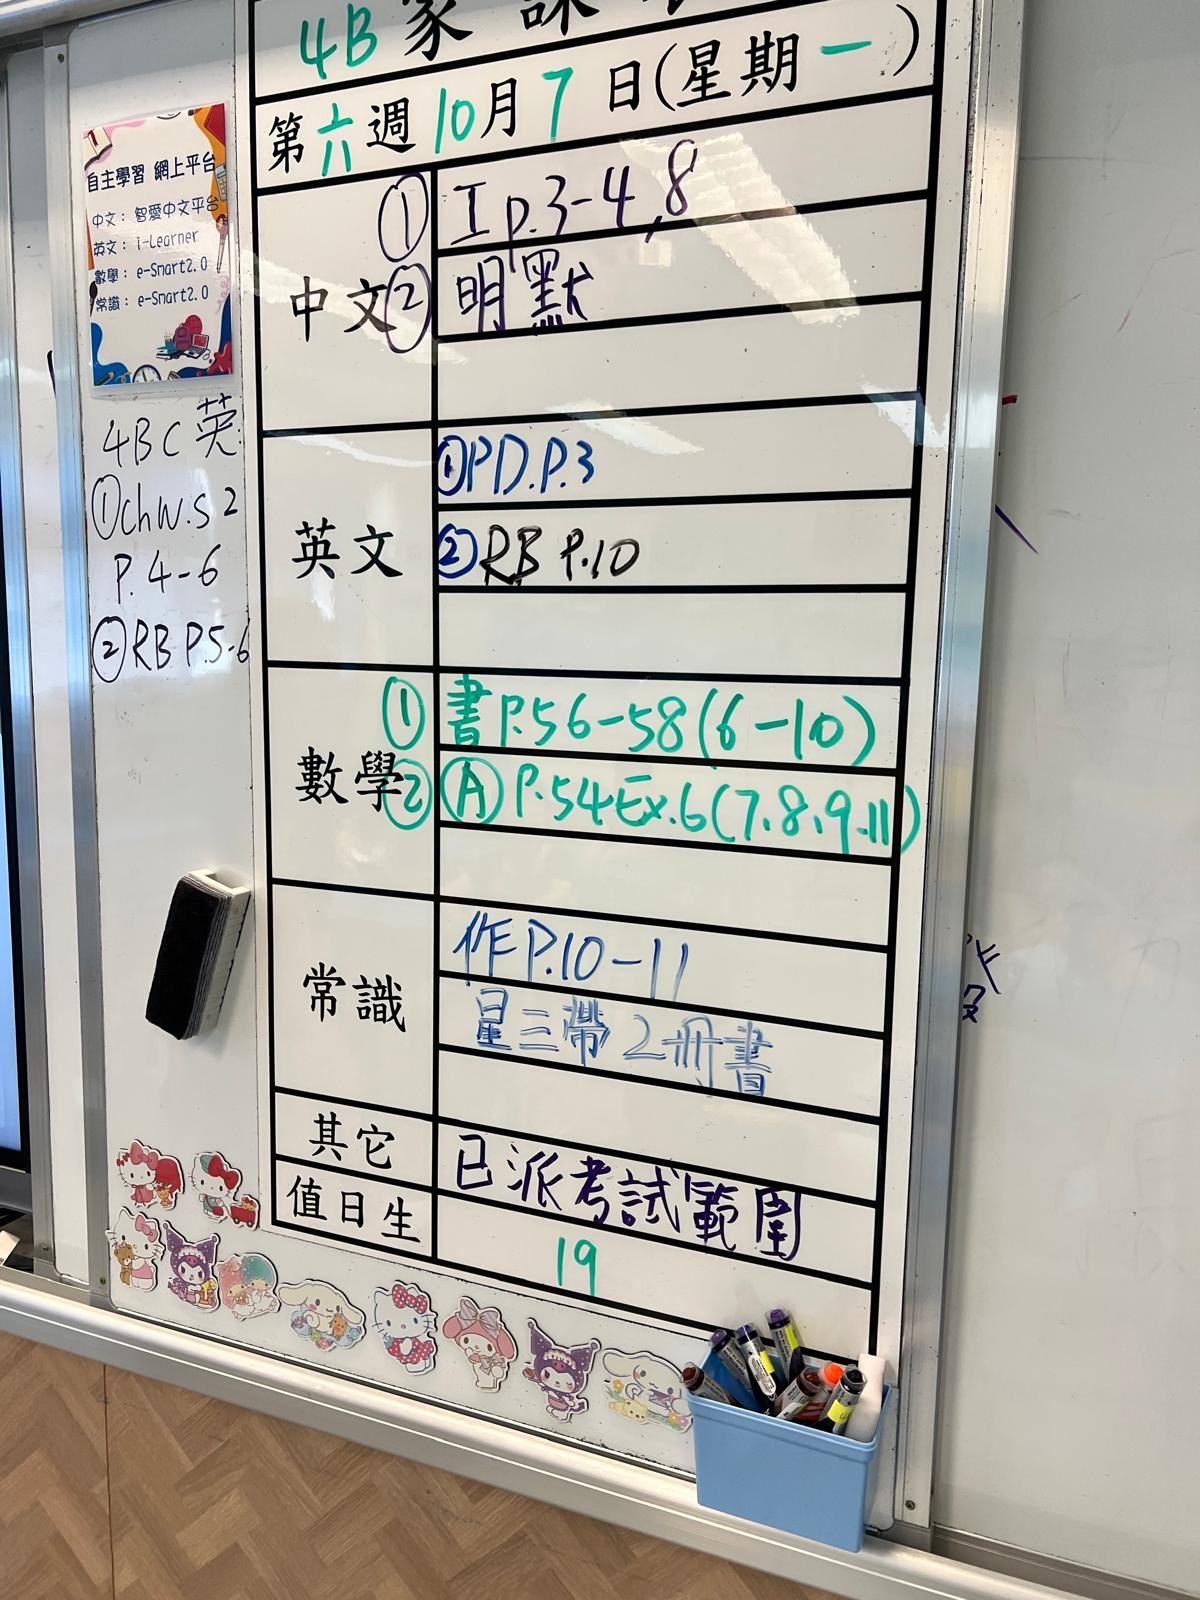 4B 家 課
第六週10月7日(星期一)
自主學習 網上平台
中文： 智愛中文平台
英文： i-Learner
數學： e-Smart2.0
常識： e-Smart2.0
4BC英
①ChW.S 2
P.4-6
②RB P.5-6
中文
① I p.3-4,8
② 明默
英文
①PD.P.3
②RB P.10
數學
① 書P.56-58(6-10)
② Ⓐ P.54Ex.6(7、8、9、11)
常識
作P.10-11
星三帶2冊書
其它
已派考試範圍
值日生
19